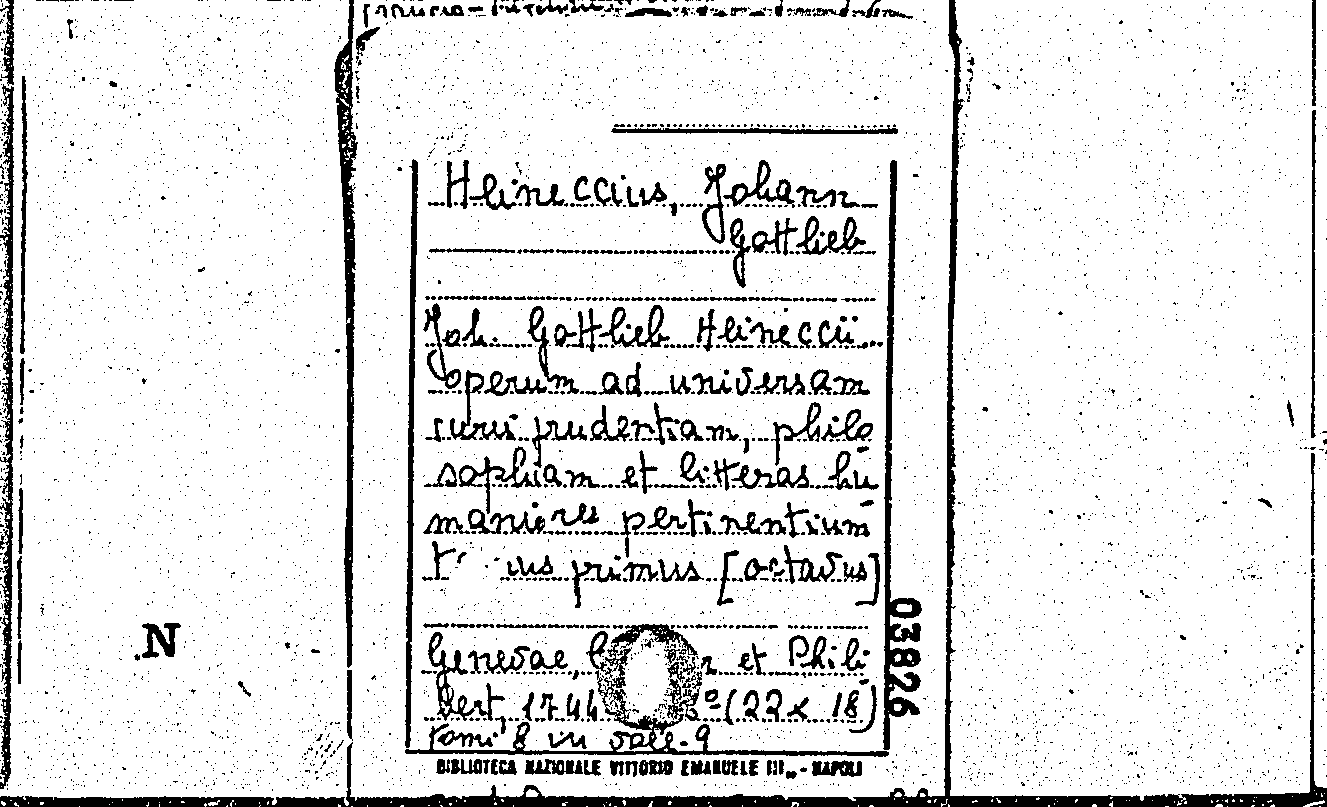 Heineccius, Johann
Gottlieb
Joh. Gottlieb Heineccii...
operum ad universam
iurisprudentiam, philo
sophiam et litteras hu
maniores pertinentium
primus [octavus]
Genevae, et Phili
bert, 1744 (22 x 18)
Tomi 8 in voll. 9
03826
N
BIBLIOTECA NAZIONALE VITTORIO EMANUELE III„ - NAPOLI